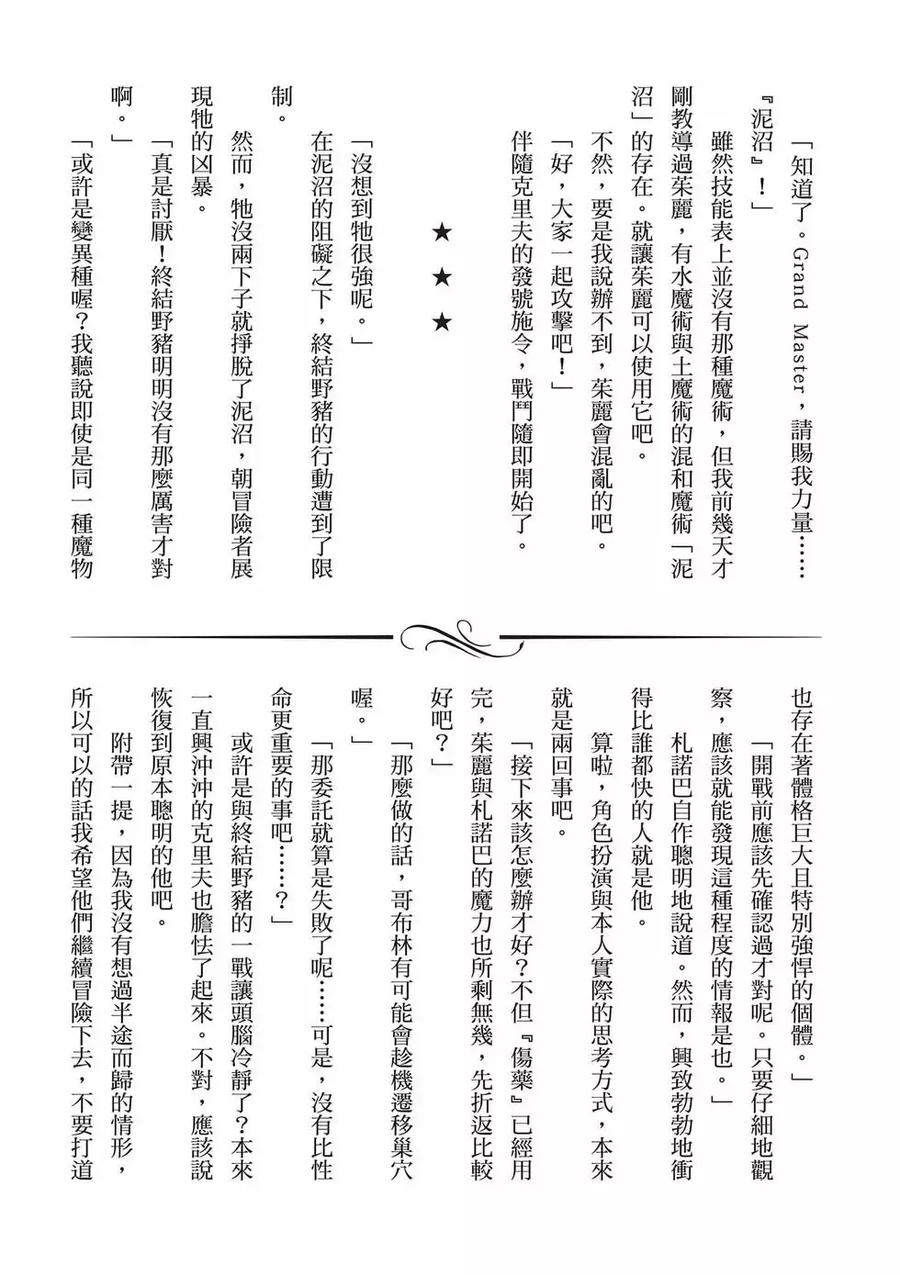 「知道了。Grand Master，請賜我力量……
『泥沼』！」
雖然技能表上並沒有那種魔術，但我前幾天才
剛教導過茱麗，有水魔術與土魔術的混和魔術「泥
沼」的存在。就讓茱麗可以使用它吧。
不然，要是我說辦不到，茱麗會混亂的吧。
「好，大家一起攻擊吧！」
伴隨克里夫的發號施令，戰鬥隨即開始了。
★ ★ ★
「沒想到牠很強呢。」
在泥沼的阻礙之下，終結野豬的行動遭到了限
制。
然而，牠沒兩下子就掙脫了泥沼，朝冒險者展
現牠的凶暴。
「真是討厭！終結野豬明明沒有那麼厲害才對
啊。」
「或許是變異種喔？我聽說即使是同一種魔物
也存在著體格巨大且特別強悍的個體。」
「開戰前應該先確認過才對呢。只要仔細地觀
察，應該就能發現這種程度的情報是也。」
札諾巴自作聰明地說道。然而，興致勃勃地衝
得比誰都快的人就是他。
算啦，角色扮演與本人實際的思考方式，本來
就是兩回事吧。
「接下來該怎麼辦才好？不但『傷藥』已經用
完，茱麗與札諾巴的魔力也所剩無幾，先折返比較
好吧？」
「那麼做的話，哥布林有可能會趁機遷移巢穴
喔。」
「那委託就算是失敗了呢……可是，沒有比性
命更重要的事吧……？」
或許是與終結野豬的一戰讓頭腦冷靜了？本來
一直興沖沖的克里夫也膽怯了起來。不對，應該說
恢復到原本聰明的他吧。
附帶一提，因為我沒有想過半途而歸的情形，
所以可以的話我希望他們繼續冒險下去，不要打道